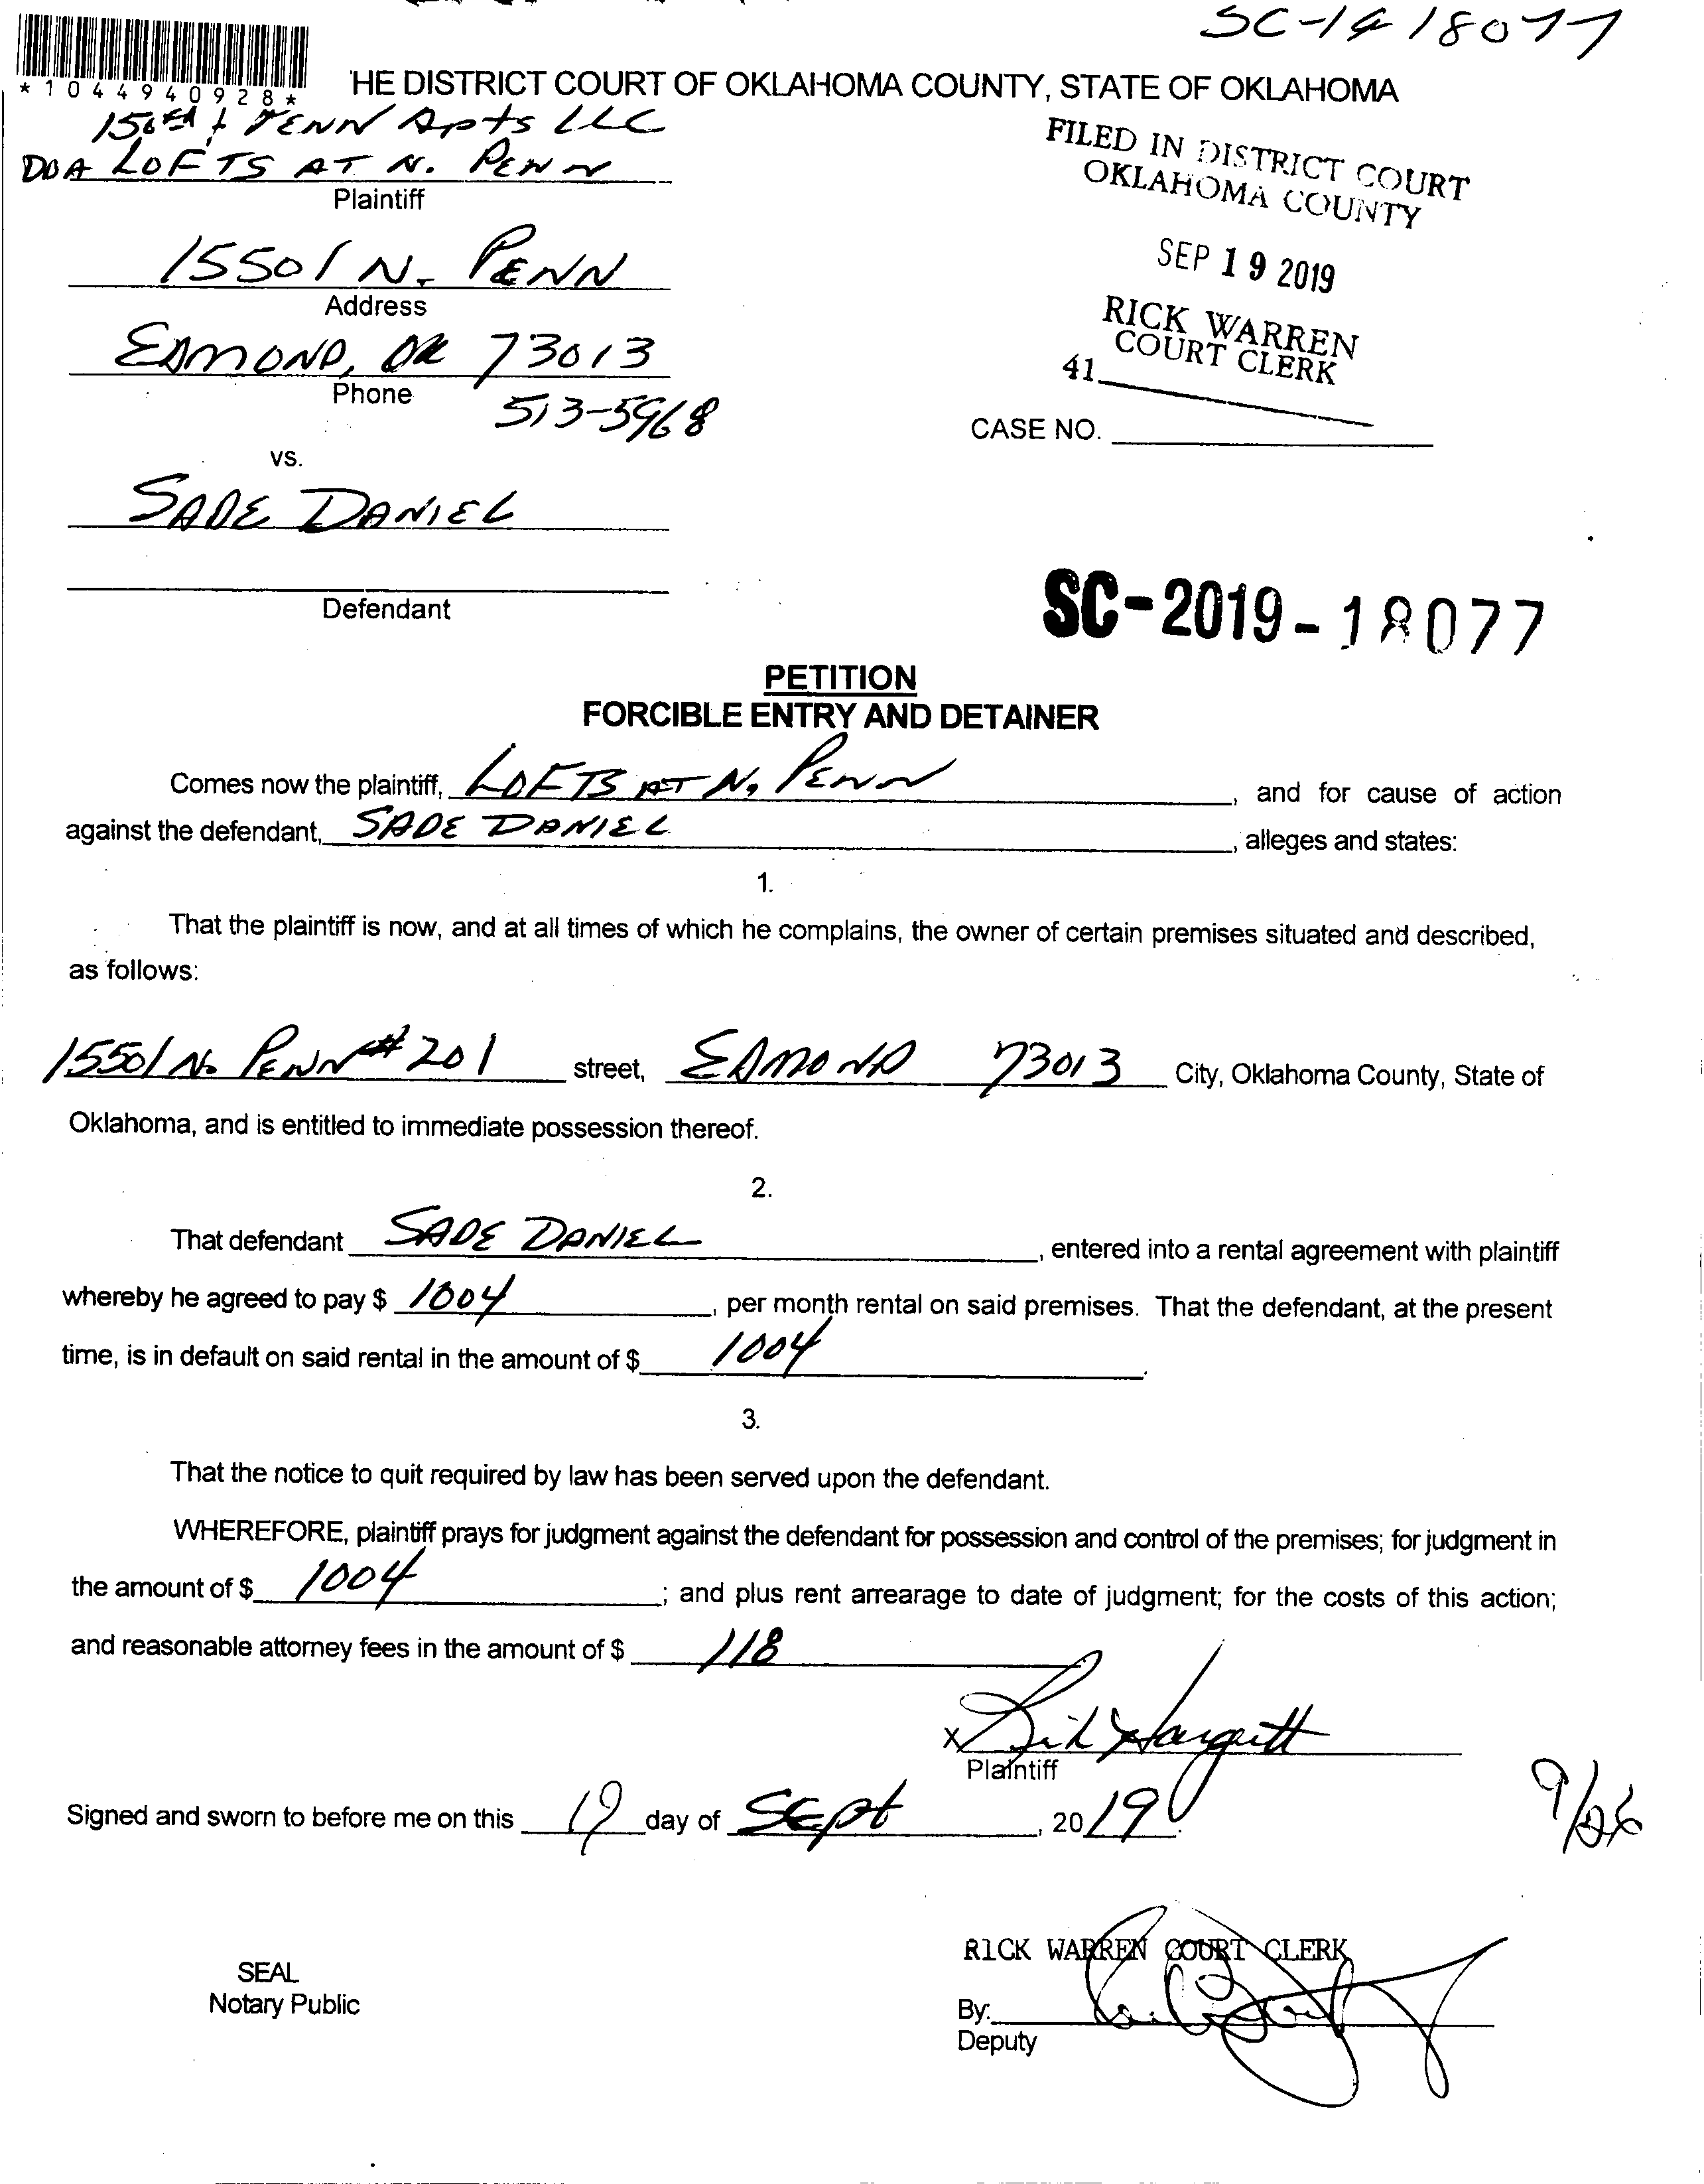 SC-19 18077
*1044940928*
HE DISTRICT COURT OF OKLAHOMA COUNTY, STATE OF OKLAHOMA
150th & PENN Apts LLC
DBA LOFTS AT N. PENN
Plaintiff
FILED IN DISTRICT COURT
OKLAHOMA COUNTY
SEP 19 2019
RICK WARREN
COURT CLERK
41
15501 N. PENN
Address
EDMOND, OK 73013
Phone
513-5968
CASE NO.
vs.
SADE DANIEL
Defendant
SC-2019-18077
PETITION
FORCIBLE ENTRY AND DETAINER
Comes now the plaintiff, LOFTS AT N. PENN, and for cause of action
against the defendant, SADE DANIEL, alleges and states:
1.
That the plaintiff is now, and at all times of which he complains, the owner of certain premises situated and described,
as follows:
15501 N. PENN #201 street, EDMOND 73013 City, Oklahoma County, State of
Oklahoma, and is entitled to immediate possession thereof.
2.
That defendant SADE DANIEL, entered into a rental agreement with plaintiff
whereby he agreed to pay $ 1004, per month rental on said premises. That the defendant, at the present
time, is in default on said rental in the amount of $ 1004.
3.
That the notice to quit required by law has been served upon the defendant.
WHEREFORE, plaintiff prays for judgment against the defendant for possession and control of the premises; for judgment in
the amount of $ 1004; and plus rent arrearage to date of judgment; for the costs of this action;
and reasonable attorney fees in the amount of $ 118
X Hargett
Plaintiff
Signed and sworn to before me on this 19 day of Sept, 2019.
9/26
RICK WARREN COURT CLERK
SEAL
Notary Public
By:
Deputy